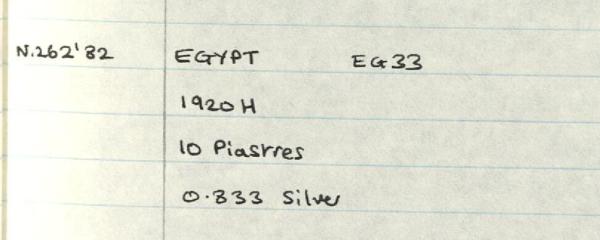 N.262'82 EGYPT EG33
1920H
10 Piastres
0.833 Silver